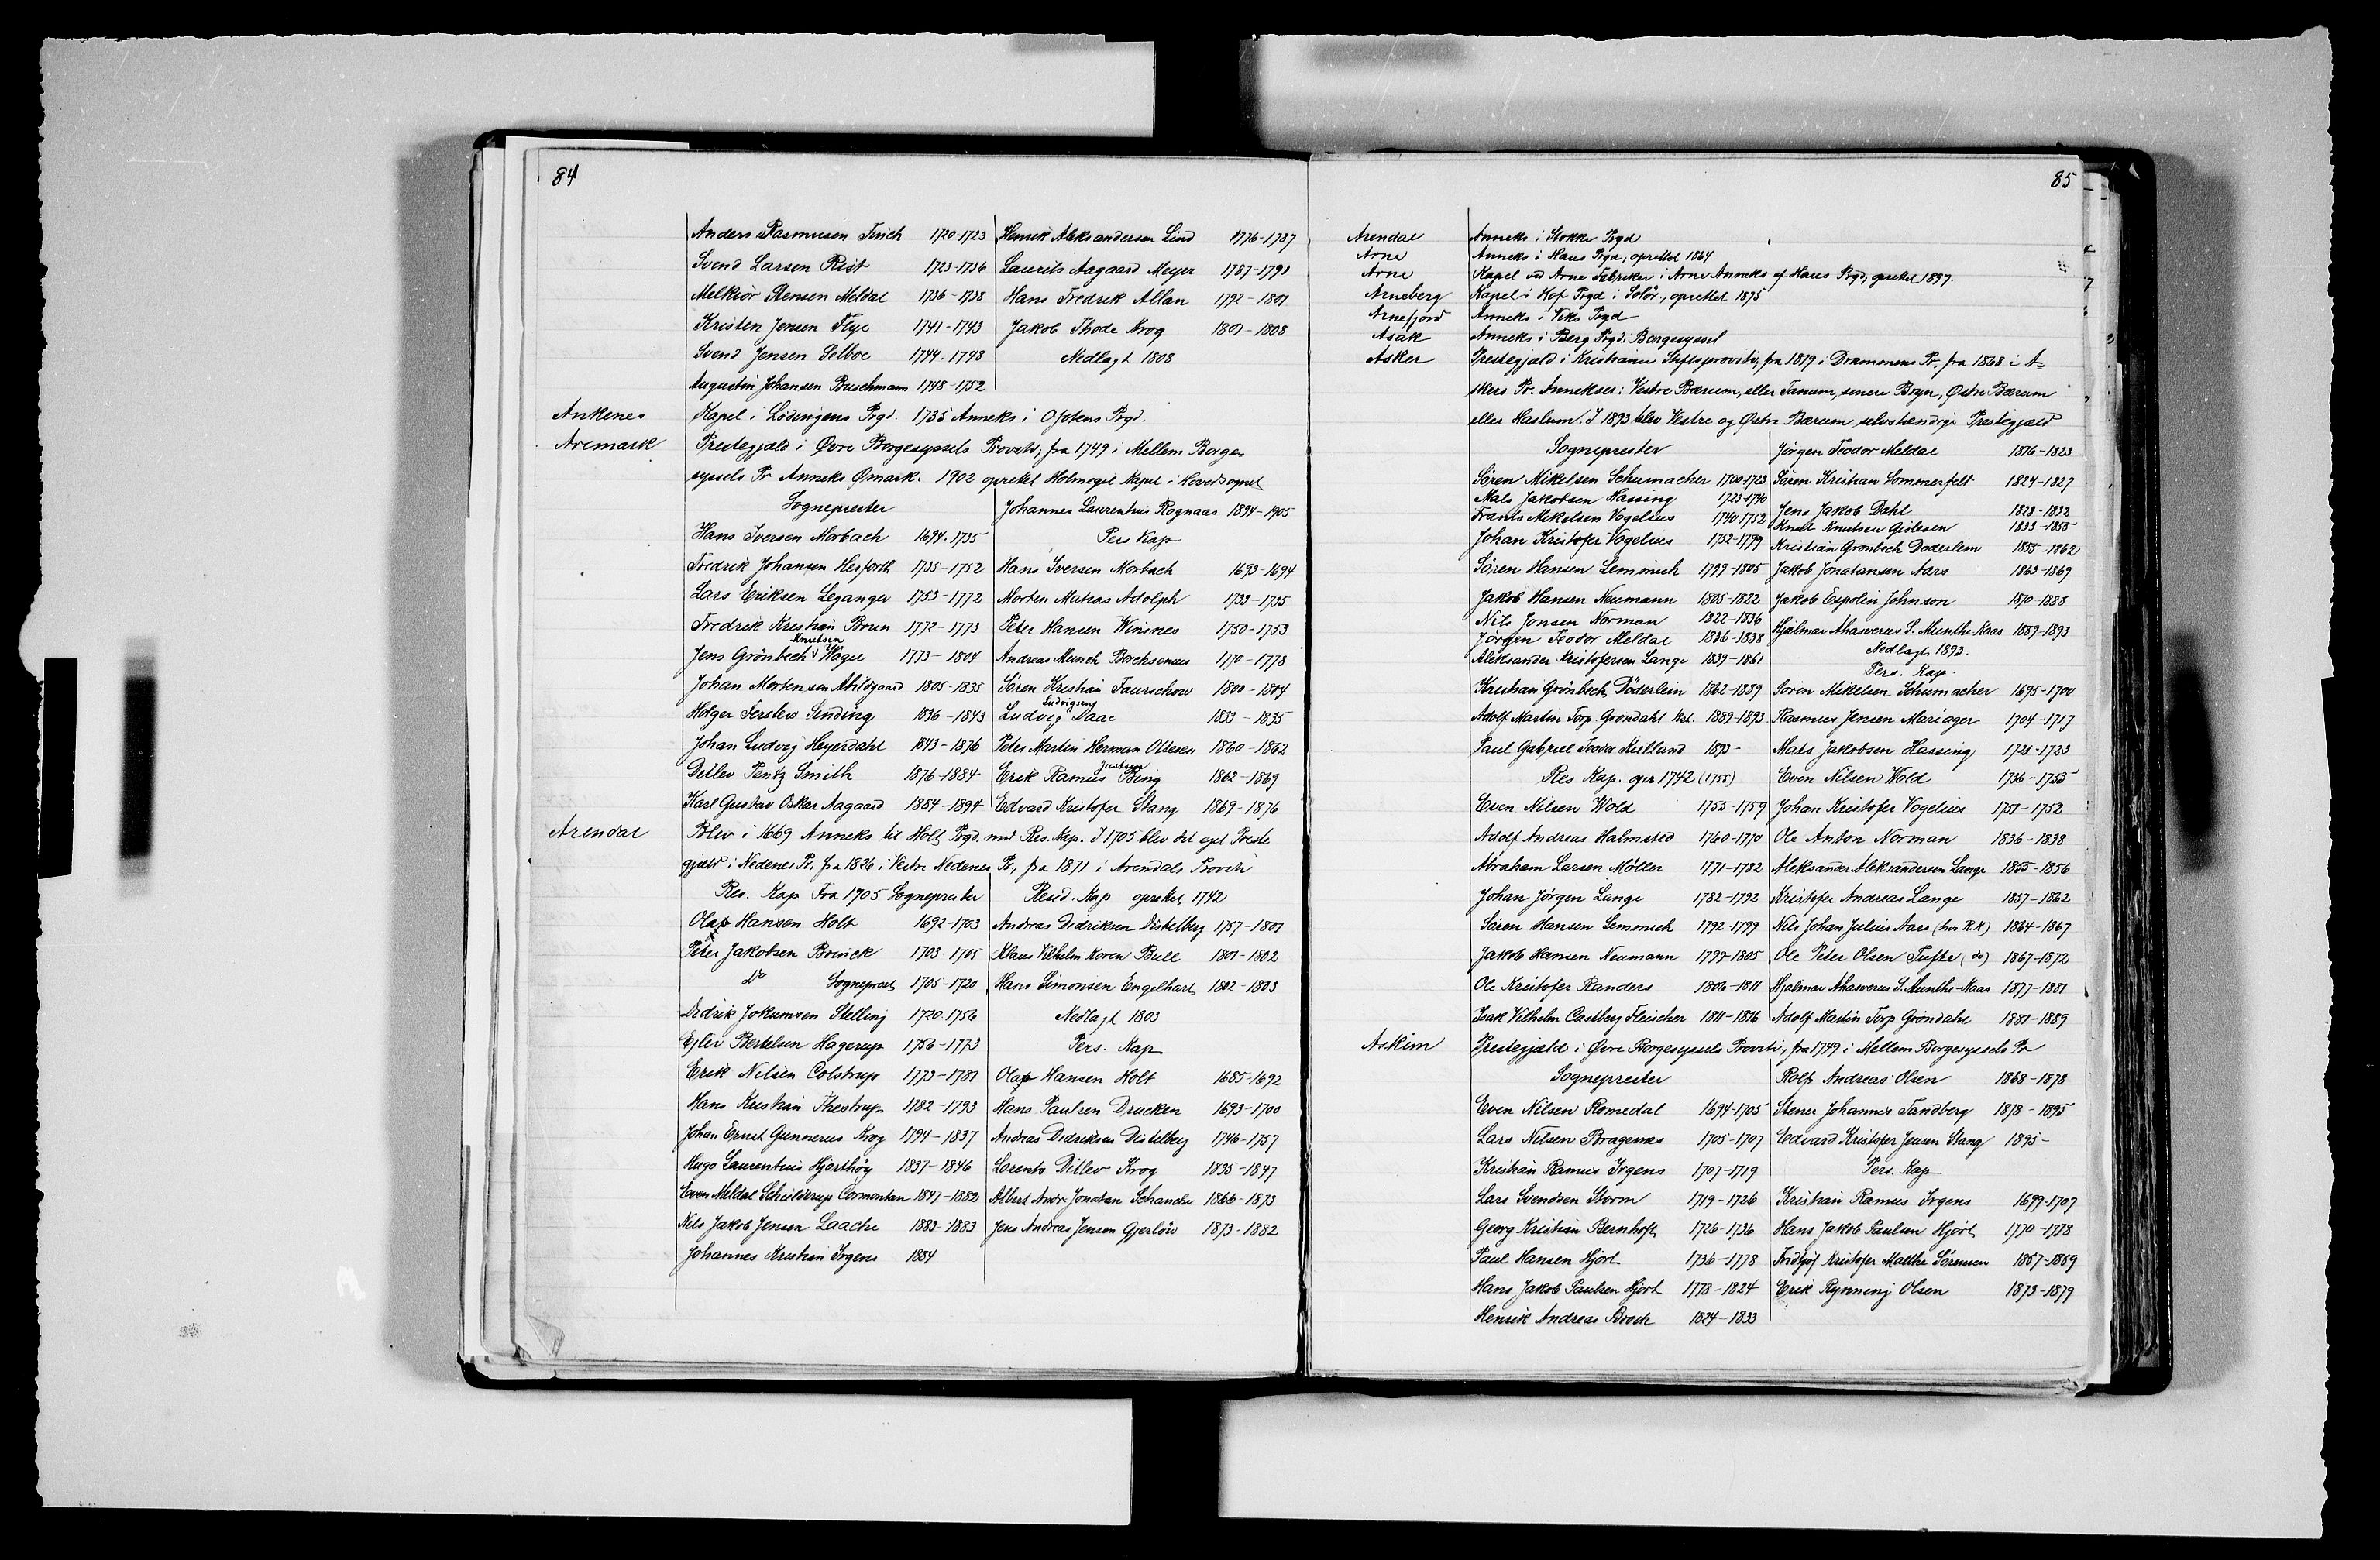 84
Anders Rasmusen Finch 1720-1723
Svend Larsen Rist 1723-1736
Melkior Stensen Meldal 1736-1738
Kristen Jensen Flye 1741-1743
Svend Jensen Selboe 1744-1748
Augustin Johansen Buschmann 1748-1752
Henrik Aleksandersen Lind 1776-1787
Laurits Aagaard Meyer 1787-1791
Hans Fredrik Allan 1792-1801
Jakob Thode Krog 1801-1808
Nedlagt 1808
Ankenes Kapel i Lødingens Prgd. 1735 Anneks i Ofotens Prgd.
Aremark Prestegjæld i Øvre Borgesyssels Provsti, fra 1749 i Mellem Borge
syssels Pr Anneks Ømark. 1902 oprettet Holmegil Kapel i Hovedsognet
Sogneprester
Hans Iversen Morbach 1694-1735
Fredrik Johansen Hesforth 1735-1752
Lars Eriksen Leganger 1753-1772
Fredrik Kristian Brun 1772-1773
Jens Grönbech Knutsen Wagel 1773-1804
Johan Mortensen Abildgaard 1805-1835
Holger Ferslew Sinding 1836-1843
Johan Ludvig Heyerdahl 1843-1876
Detlev Pentz Smith 1876-1884
Karl Gustav Oskar Aagaard 1884-1894
Johannes Laurentius Rognaas 1894-1905
Pers Kap
Hans Iversen Morbach 1693-1694
Morten Matias Adolph 1733-1735
Peter Hansen Winsnes 1750-1753
Andreas Munch Borchsenius 1770-1778
Sören Kristian Faurschow 1800-1804
Ludvig Ludvigsen Daae 1833-1835
Peter Martin Herman Ottesen 1860-1862
Erik Ramus Justsen Bing 1862-1869
Edvard Kristofer Stang 1869-1876
Arendal Blev i 1669 Anneks til Holt Prgd. med Res. Kap. I 1705 blev det eget Preste
gjæld i Nedenes Pr, fra 1826 i Vestre Nedenes Pr, fra 1871 i Arendals Provsti
Res. Kap Fra 1705 Sogneprester
Olaf Hansen Holt 1692-1703
Peter Jakobsen Brinck 1703-1705
Do Sogneprest 1705-1720
Didrik Jokumsen Stelling 1720-1756
Ejler Bertelsen Hagerup 1756-1773
Erik Nilsen Colstrup 1773-1781
Hans Kristian Thestrup 1782-1793
Johan Ernst Gunnerus Krog 1794-1837
Hugo Laurentius Hjorthöy 1837-1846
Even Meldal Schielderup Cormontan 1847-1882
Nils Jakob Jensen Laache 1883-1883
Johannes Kristian Irgens 1884
Resid. Kap oprettet 1742
Andreas Didriksen Distelberg 1757-1801
Klaus Vilhelm Koren Bull 1801-1802
Hans Simonsen Engelhart 1802-1803
Nedlagt 1803
Pers. Kap
Olaf Hansen Holt 1685-1692
Hans Paulsen Drucken 1693-1700
Andreas Didriksen Distelberg 1746-1757
Lorents Ditlev Krog 1835-1847
Albert Andr. Jonatan Schanche 1866-1873
Jens Andreas Jensen Gjerlöw 1873-1882
85
Arendal Anneks i Stokke Prgd
Arne Anneks i Haus Prgd, oprettet 1864
Arne Kapel ved Arne Fabriker i Arne Anneks af Haus Prgd, oprettet 1897.
Arneberg Kapel i Hof Prgd i Solör, oprettet 1875
Arnefjord Anneks i Viks Prgd
Asak Anneks i Berg Prgd. Borgesyssel
Asker Prestegjæld i Kristiania Stiftsprovsti, fra 1879 i Drammens Pr. fra 1868 i A-
skers Pr. Annekser: Vestre Bærum, eller Tanum, senere Bryn, Østre Bærum
eller Haslum. I 1893 blev Vestre og Østre Bærum selvstændige Prestegjæld
Sogneprester
Sören Mikelsen Schumacher 1700-1723
Mats Jakobsen Hassing 1723-1740
Frants Mikelsen Vogelius 1740-1752
Johan Kristofer Vogelius 1752-1799
Sören Hansen Lemmich 1799-1805
Jakob Hansen Neumann 1805-1822
Nils Jonsen Norman 1822-1836
Jörgen Teodor Meldal 1836-1838
Aleksander Kristofersen Lange 1839-1861
Kristian Grönbech Döderlein 1862-1889
Adolf Martin Torp Gröndahl Kst. 1889-1893
Paul Gabriel Teodor Kielland 1893-
Res Kap. opr 1742 (1755)
Even Nilsen Wold 1755-1759
Adolf Andreas Halmsted 1760-1770
Abraham Larsen Möller 1771-1782
Johan Jörgen Lange 1782-1792
Sören Hansen Lemmich 1792-1799
Jakob Hansen Neumann 1799-1805
Ole Kristofer Randers 1806-1811
Isak Vilhelm Castberg Fleischer 1811-1816
Jörgen Teodor Meldal 1816-1823
Sören Kristian Sommerfelt 1824-1827
Jens Jakob Dahl 1828-1832
Knut Knutsen Gislesen 1833-1855
Kristian Grönbech Döderlein 1855-1862
Jakob Jonatansen Aars 1863-1869
Jakob Espolin Johnson 1870-1888
Hjalmar Ahasverus S. Munthe Kaas 1889-1893
Nedlagt 1893.
Pers. Kap.
Sören Mikelsen Schumacher 1695-1700
Rasmus Jensen Mariager 1704-1717
Mats Jakobsen Hassing 1721-1723
Even Nilsen Wold 1736-1755
Johan Kristofer Vogelius 1751-1752
Ole Anton Norman 1836-1838
Aleksander Aleksandersen Lange 1855-1856
Kristofer Andreas Lange 1857-1862
Nils Johan Julius Aars (hos R.K) 1864-1867
Ole Peter Olsen Tufte (do) 1867-1872
Hjalmar Ahasverus S. Munthe-Kaas 1877-1881
Adolf Martin Torp Gröndahl 1881-1889
Askim Prestegjæld i Øvre Borgesyssels Provsti, fra 1749 i Mellem Borgesyssels Pr
Sogneprester
Even Nilsen Romedal 1694-1705
Lars Nilsen Bragenæs 1705-1707
Kristian Ramus Irgens 1707-1719
Lars Svendsen Storm 1719-1726
Georg Kristian Bernhoft 1726-1736
Paul Hansen Hjort 1736-1778
Hans Jakob Paulsen Hjort 1778-1824
Henrik Andreas Broch 1824-1833
Rolf Andreas Olsen 1868-1878
Stener Johannes Sandberg 1878-1895
Edvard Kristofer Jensen Stang 1895-
Pers. Kap
Kristian Ramus Irgens 1699-1707
Hans Jakob Paulsen Hjort 1770-1778
Fridtjof Kristofer Malthe Sörensen 1857-1859
Erik Rynning Olsen 1873-1879